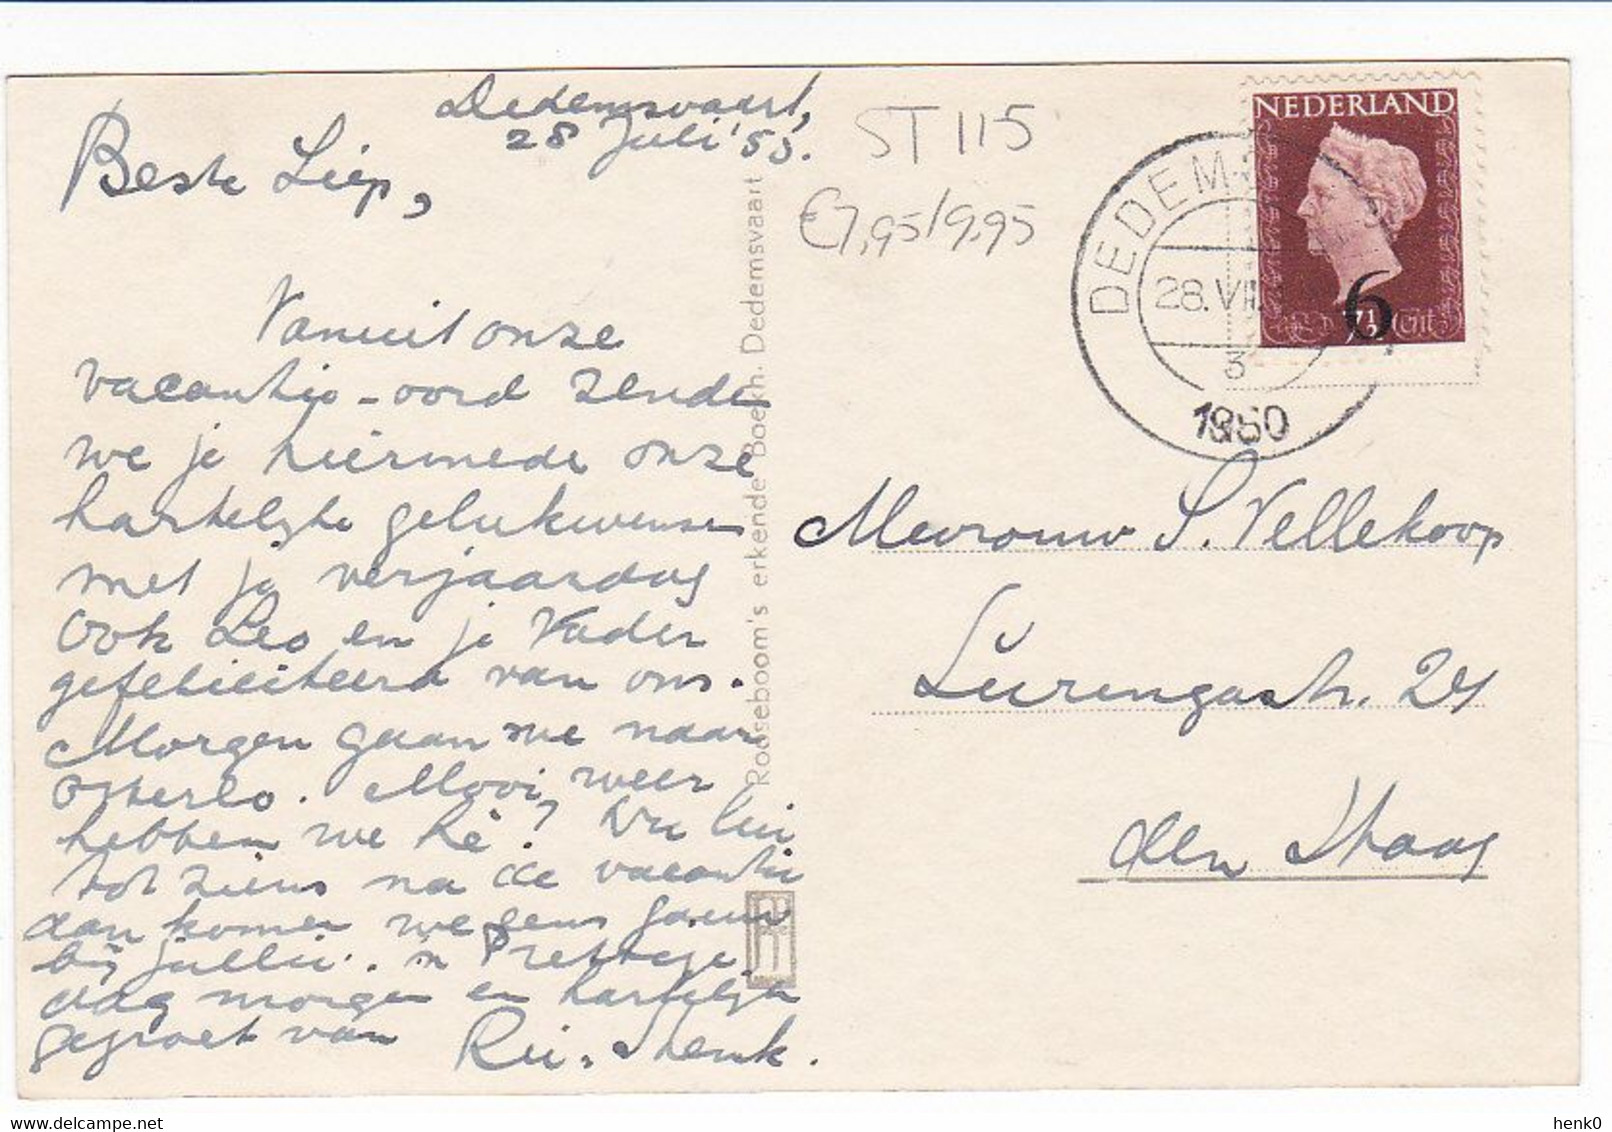 Dedemsvaart,
28 Juli '55.
Beste Liep,
Vanuit onze
vacantie-oord zenden
we je hiermede onze
hartelijke gelukwensen
met je verjaardag
Ook Leo en je Vader
gefeliciteerd van ons.
Morgen gaan we naar
Otterlo. Mooi weer
hebben we hè?
tot ziens na de vacantie
dan komen we eens gauw
bij jullie. 'n Prettige
dag morgen en hartelijk
gegroet van
Rie. & Henk.
Rooseboom's erkende Boekh. Dedemsvaart
ST 115
€7,95/9,95
NEDERLAND
6
7½ cent
DEDEMS
28.VII
3
1950
Mevrouw S. Vellekoop
24
den Haag
henk0